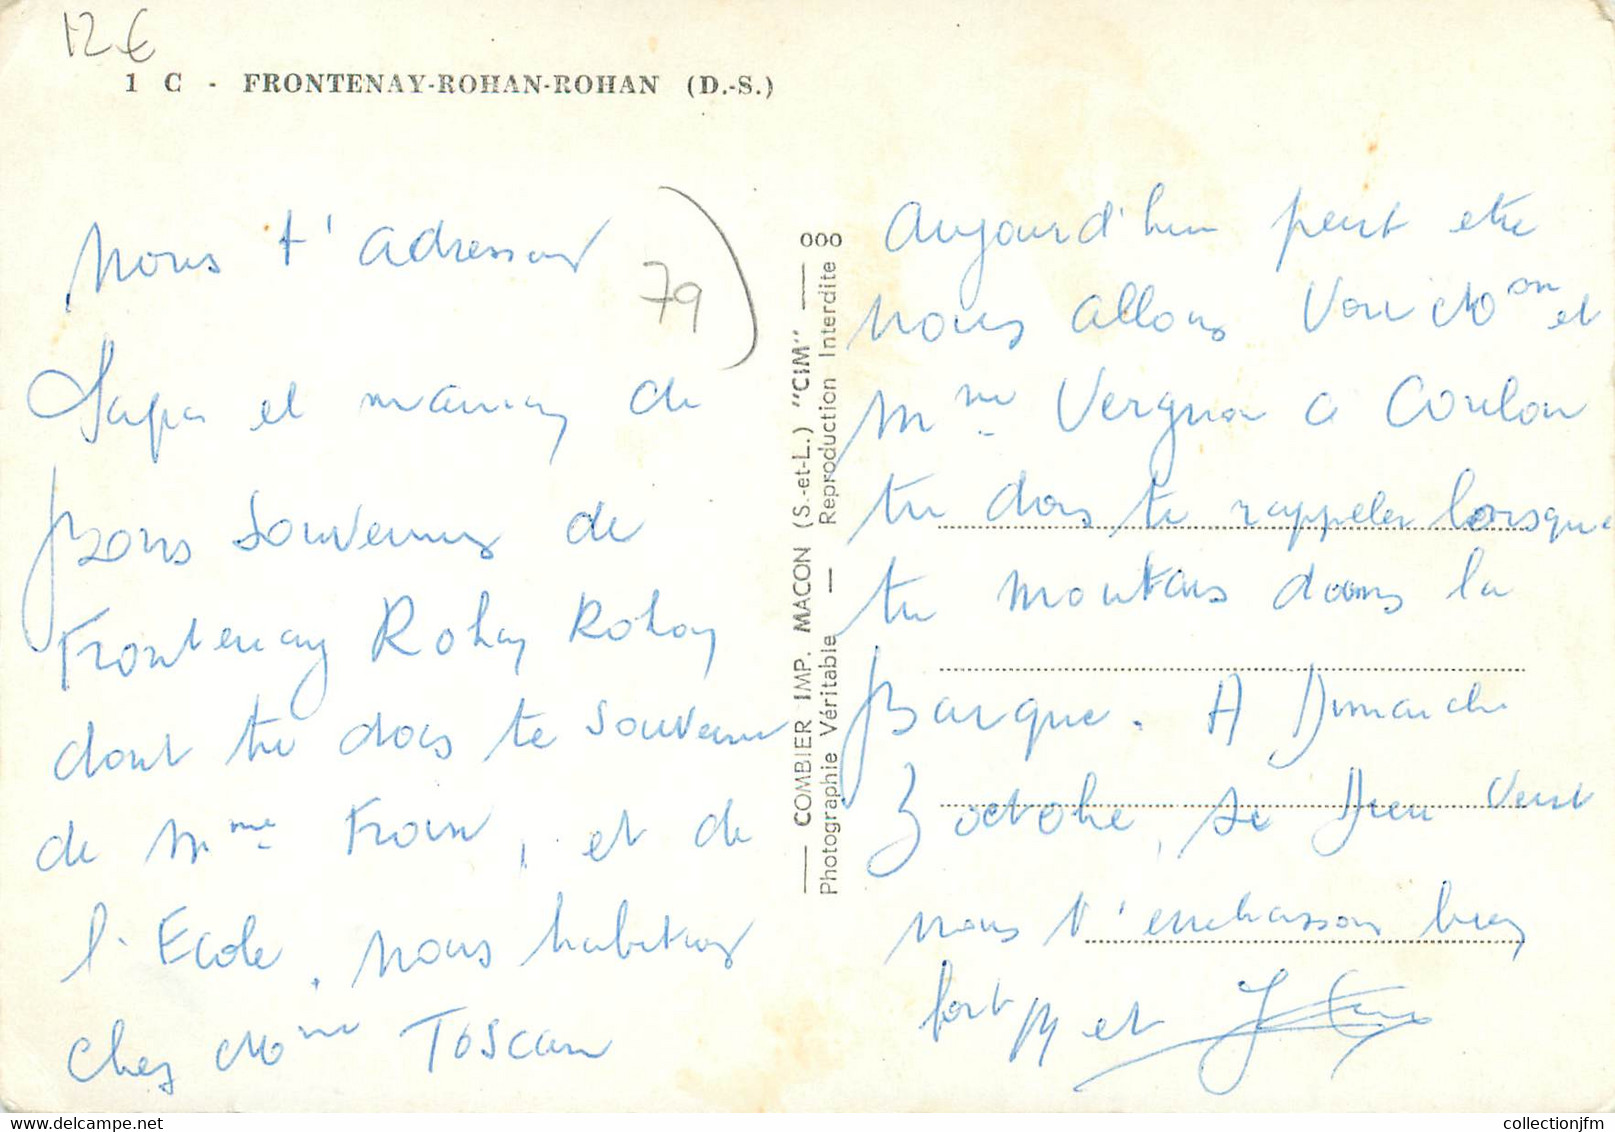 12 €
1 C - FRONTENAY-ROHAN-ROHAN (D.-S.)
79
Nous t'adressons
Papa et maman de
Bons Souvenirs de
Frontenay Rohan Rohan
dont tu dois te souvenir
de Mme et de
l'Ecole, nous habitions
chez Mme TOSCAN
COMBIER IMP. MACON (S.-et-L.) "CIM"
Photographie Véritable — Reproduction Interdite
000
Aujourd'hui peut etre
nous allons voir Mon et
Mme a Coulon
tu dois te rappeler lorsque
tu montais dans la
Barque. A Dimanche
3 octobre, si Dieu veut
nous t'embrassons bien
fort M et
collectionjfm